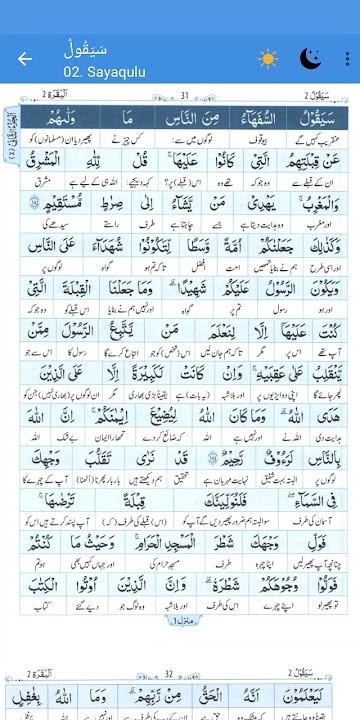 سَيَقُولُ
02. Sayaqulu
سَيَقُوْلُ 2
31
اَلْبَقَرَة 2
سَيَقُوْلُ السُّفَهَآءُ مِنَ النَّاسِ مَا وَلّٰىهُمْ
عنقریب کہیں گے بیوقوف لوگوں میں سے: کس چیز نے پھیر دیا ان (مسلمانوں) کو
عَنْ قِبْلَتِهِمُ الَّتِيْ كَانُوْا عَلَيْهَا ۚ قُلْ لِّلّٰهِ الْمَشْرِقُ
ان کے قبلے سے وہ جو کہ تھے وہ اس (قبلے) پر؟ کہہ دیجیے: اللہ ہی کے لیے ہے مشرق
وَالْمَغْرِبُ ۚ يَهْدِيْ مَنْ يَّشَآءُ اِلٰى صِرَاطٍ مُّسْتَقِيْمٍ
اور مغرب وہ ہدایت دیتا ہے جسے چاہتا ہے طرف راستے سیدھے کی
وَكَذٰلِكَ جَعَلْنٰكُمْ اُمَّةً وَّسَطًا لِّتَكُوْنُوْا شُهَدَآءَ عَلَى النَّاسِ
اور اسی طرح ہم نے بنایا تمہیں امت افضل تاکہ تم ہو گواہ لوگوں پر
وَيَكُوْنَ الرَّسُوْلُ عَلَيْكُمْ شَهِيْدًا ۗ وَمَا جَعَلْنَا الْقِبْلَةَ الَّتِيْ
اور ہو رسول تم پر گواہ اور نہیں ہم نے بنایا اس قبلے کو وہ جو کہ
كُنْتَ عَلَيْهَآ اِلَّا لِنَعْلَمَ مَنْ يَّتَّبِعُ الرَّسُوْلَ مِمَّنْ
آپ تھے اس پر مگر تاکہ ہم جان لیں اس (شخص) کو جو اتباع کرے گا رسول کا اس سے جو
يَّنْقَلِبُ عَلٰى عَقِبَيْهِ ۗ وَاِنْ كَانَتْ لَكَبِيْرَةً اِلَّا عَلَى الَّذِيْنَ
پھر جائے گا اپنی دو ایڑیوں پر اور بلاشبہ (یہ بات) ہے یقیناً بڑی بھاری مگر ان لوگوں پر (بھاری نہیں) جن کو
هَدَى اللّٰهُ ۗ وَمَا كَانَ اللّٰهُ لِيُضِيْعَ اِيْمَانَكُمْ ۗ اِنَّ اللّٰهَ
ہدایت دی اللہ نے اور نہیں ہے اللہ کہ ضائع کر دے تمہارا ایمان بے شک اللہ
بِالنَّاسِ لَرَءُوْفٌ رَّحِيْمٌ قَدْ نَرٰى تَقَلُّبَ وَجْهِكَ
لوگوں پر البتہ بہت شفیق نہایت مہربان ہے تحقیق ہم دیکھتے ہیں بار بار پھرنا (اٹھنا) آپ کے چہرے کا
فِي السَّمَآءِ ۚ فَلَنُوَلِّيَنَّكَ قِبْلَةً تَرْضٰىهَا ۠
آسمان کی طرف سو البتہ ہم ضرور پھیر دیں گے آپ کو (اس) قبلے کی طرف (کہ) آپ پسند کرتے ہیں اس کو
فَوَلِّ وَجْهَكَ شَطْرَ الْمَسْجِدِ الْحَرَامِ ۗ وَحَيْثُ مَا كُنْتُمْ
چنانچہ آپ پھیر لیں اپنا چہرہ طرف مسجد حرام کی اور جہاں کہیں بھی ہو تم
فَوَلُّوْا وُجُوْهَكُمْ شَطْرَهٗ ۗ وَاِنَّ الَّذِيْنَ اُوْتُوا الْكِتٰبَ
تو پھیر لو اپنے چہرے اس کی طرف اور بلاشبہ وہ لوگ جو دیے گئے کتاب
منزل 1
سَيَقُوْلُ 2
32
اَلْبَقَرَة 2
لَيَعْلَمُوْنَ اَنَّهُ الْحَقُّ مِنْ رَّبِّهِمْ ۗ وَمَا اللّٰهُ بِغَافِلٍ